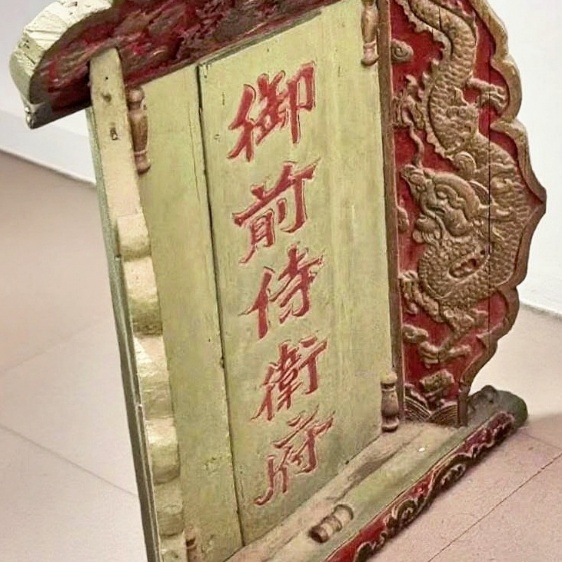 御前侍衛府